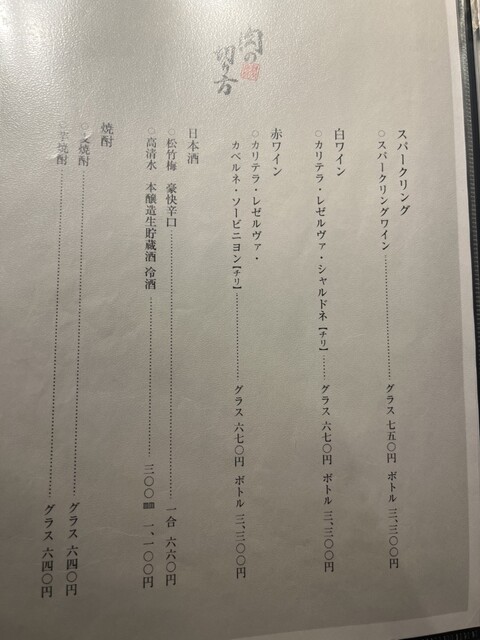 肉の
切り方
スパークリング
○スパークリングワイン………………グラス 七五〇円 ボトル 三、三〇〇円
白ワイン
○カリテラ・レゼルヴァ・シャルドネ【チリ】………グラス 六七〇円 ボトル 三、三〇〇円
赤ワイン
○カリテラ・レゼルヴァ・
カベルネ・ソービニヨン【チリ】………………グラス 六七〇円 ボトル 三、三〇〇円
日本酒
○松竹梅 豪快辛口………………………………一合 六六〇円
○高清水 本醸造生貯蔵酒 冷酒………………三〇〇㎖ 一、一〇〇円
焼酎
○麦焼酎………………………………………グラス 六四〇円
○芋焼酎………………………………………グラス 六四〇円